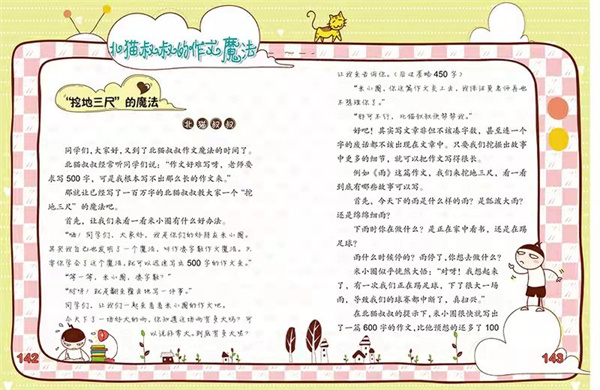 北猫叔叔的作文魔法
“挖地三尺”的魔法
北猫叔叔
同学们，大家好，又到了北猫叔叔作文魔法的时间了。
北猫叔叔经常听同学们说：“作文好难写呀，老师要
求写 500 字，可是我根本写不出那么长的作文来。”
那就让已经写了一百万字的北猫叔叔教大家一个“挖
地三尺”的魔法吧。
首先，让我们来看一看米小圈有什么好办法。
“嗨！同学们，大家好，我是你们的好朋友米小圈。
其实我自己也发明了一个魔法，叫作凑字数作文魔法。只
要你学会了这个魔法，就可以迅速写出 500 字的作文来。”
“等一等，米小圈，凑字数？”
“对呀！就是翻来覆去地写一件事。”
同学们，让我们一起来看看米小圈的作文吧。
今天下了一场好大的雨，你知道这场雨有多大吗？可
以说非常大。到底有多大呢？
142
让我来告诉你。（后边省略 450 字）
“米小圈，你这篇作文交上去，我保证莫老师再也
不想理你了。”
“那可不行，北猫叔叔快帮帮我。”
好吧！其实写文章非但不该凑字数，甚至连一个
字的废话都不该出现在文章中。只要我们挖掘出故事
中更多的细节，就可以把作文写得很长。
例如《雨》这篇作文，我们来挖地三尺，看一看
到底有哪些故事可以写。
首先，今天下的雨是什么样的雨？是瓢泼大雨？
还是绵绵细雨？
下雨时你在做什么？是正在家中看书，还是在踢
足球？
雨什么时候停的？雨停了，你想去做什么？
米小圈似乎恍然大悟：“对呀！我想起来
了，有一次我们正在踢足球，下了很大一场
雨，导致我们的球赛都中断了，真扫兴。”
在北猫叔叔的提示下，米小圈很快就写出
了一篇 600 字的作文，比他预想的还多了 100
143